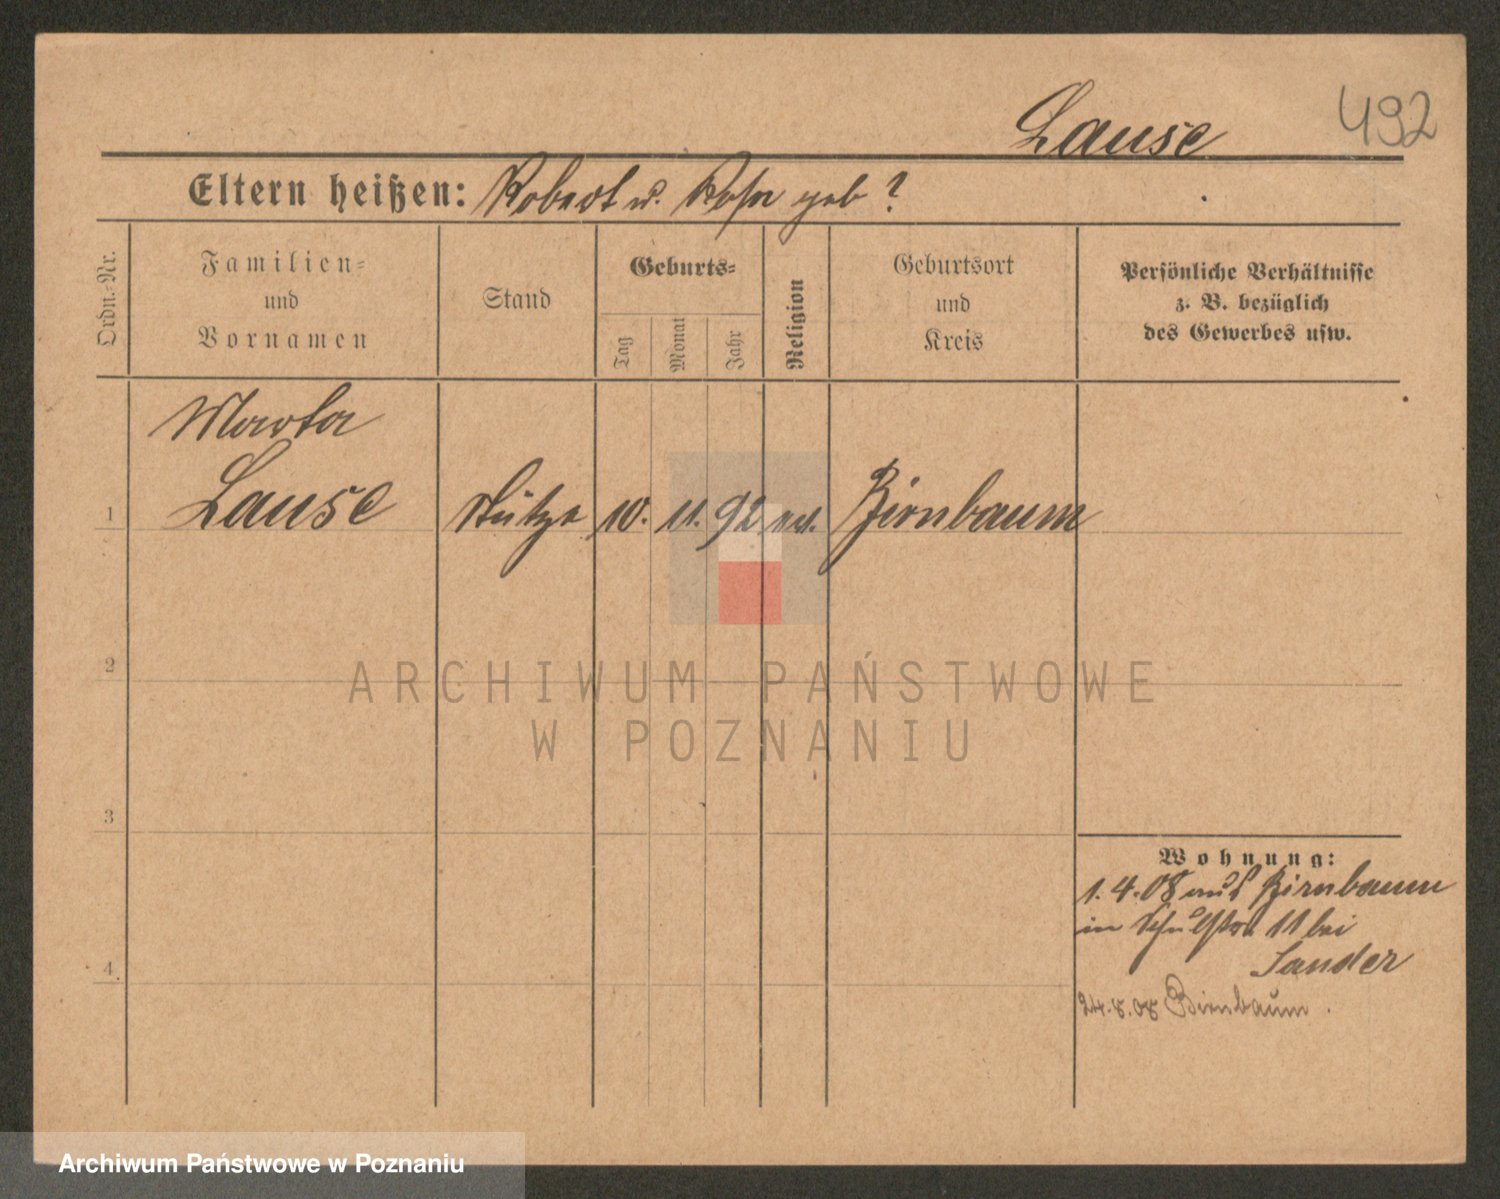 492
Lause
Eltern heißen: Robert u. Rosa geb ?
Ordn.-Nr.
Familien-
und
Vornamen
Stand
Geburts-
Tag
Monat
Jahr
Religion
Geburtsort
und
Kreis
Persönliche Verhältnisse
z. B. bezüglich
des Gewerbes usw.
Marta
1 Lause Stütze 10. 11. 92 ev. Birnbaum
2
ARCHIWUM PAŃSTWOWE
W POZNANIU
3
Wohnung:
1.4.08 aus Birnbaum
in Schulstr. 11 bei
Sander
4
24.8.08 Birnbaum.
Archiwum Państwowe w Poznaniu